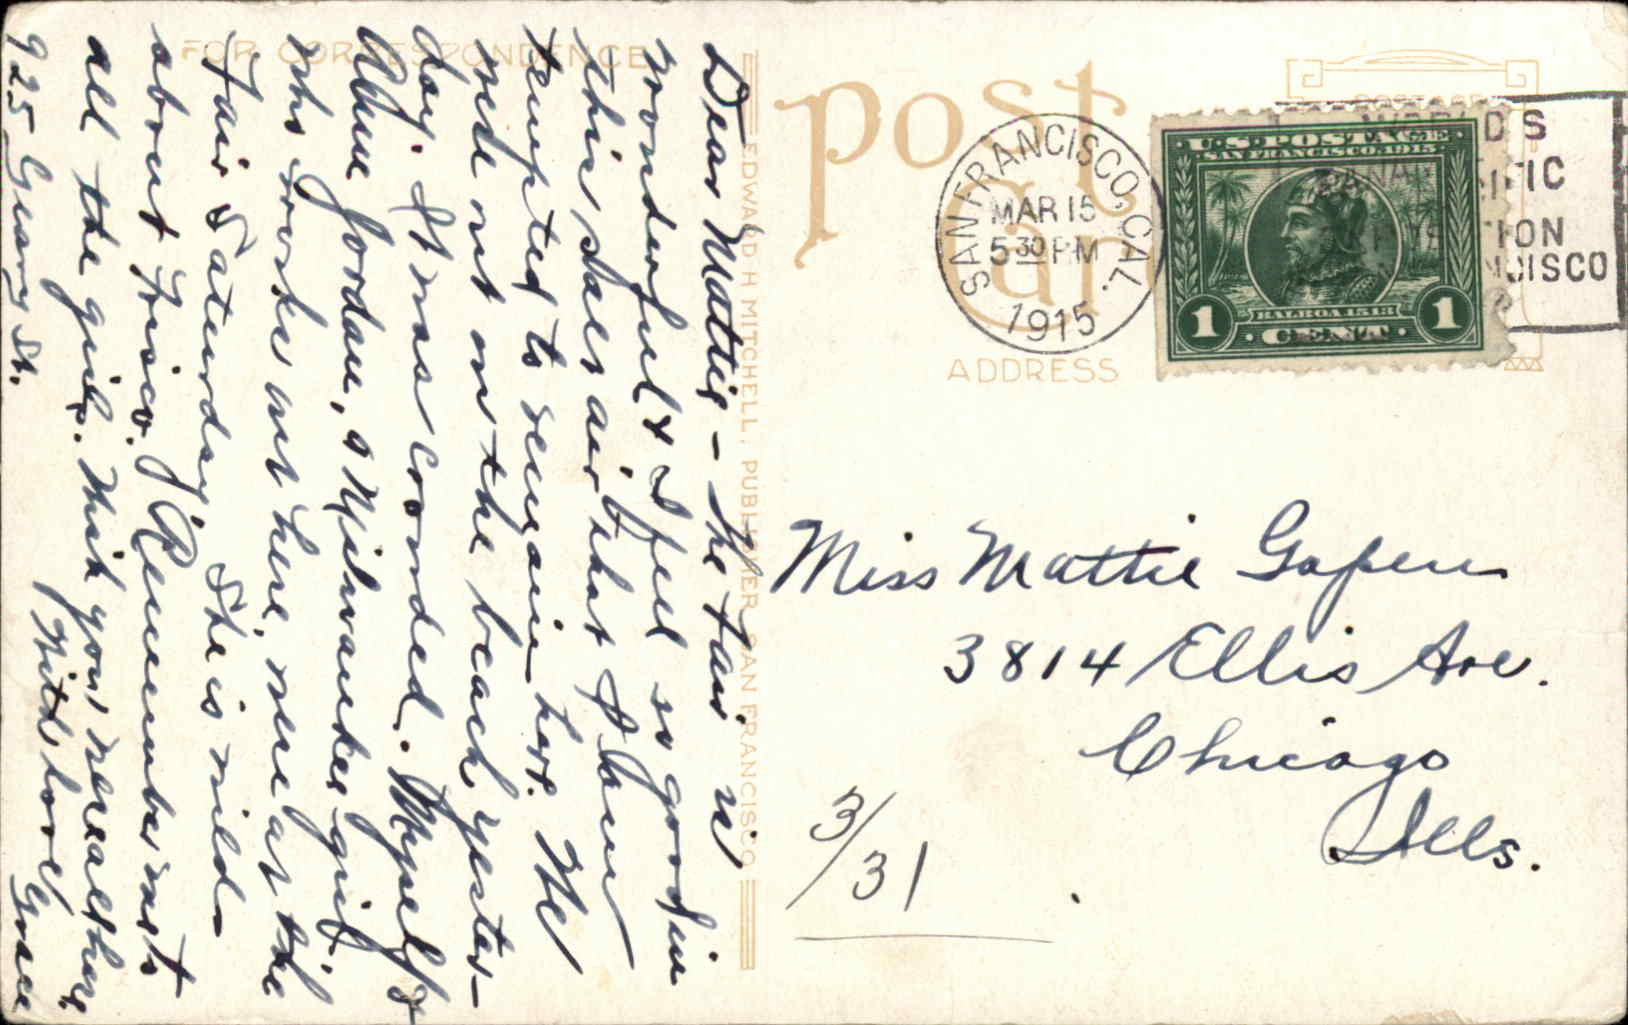 FOR CORRESPONDENCE
Dear Mattie – The fair is
wonderful & I feel so good in
this air, that I am
tempted to remain here. We
were out on the beach yester-
day. It was crowded. Myself &
Jordan, a Milwaukee girl
who works out here, were at the
Fair Saturday. She is wild
about Frisco. Remember me to
all the girls. Wish you were all here
With love Grace
925 Geary St.
EDWARD H MITCHELL, PUBLISHER, SAN FRANCISCO
Post
Card
SAN FRANCISCO, CAL.
MAR 15
5 30 PM
1915
U.S. POSTAGE
SAN FRANCISCO 1915
BALBOA 1513
1 CENT 1
ADDRESS
Miss Mattie Gapen
3814 Ellis Ave.
Chicago
Ills.
3/31